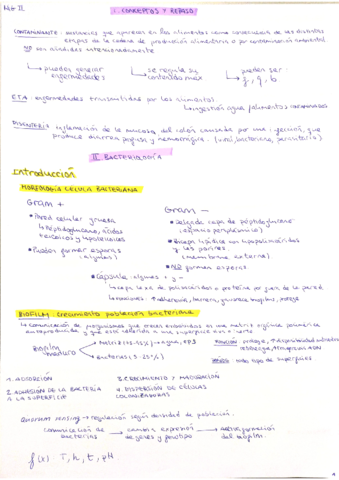 MG II
I. CONCEPTOS Y REPASO
CONTAMINANTE: sustancias que aparecen en los alimentos como consecuencia de las distintas
etapas de la cadena de producción alimentaria o por contaminación ambiental
y no son añadidas intencionadamente
↳ pueden generar enfermedades
↳ se regula su contenido máx
pueden ser: f, q, b
ETA: enfermedades transmitidas por los alimentos
↳ ingestión agua / alimentos contaminados
DISENTERÍA: inflamación de la mucosa del colon causada por una infección, que
produce diarrea y hemorrágica. (viral, bacteriana, parasitaria)
II. BACTERIOLOGÍA
Introducción
MORFOLOGÍA CÉLULA BACTERIANA
Gram +
• Pared celular gruesa
↳ Peptidoglucano, ácidos
teicoicos y lipoteicoicos
• Pueden formar esporas
(algunas)
Gram -
• Delgada capa de peptidoglucano
(espacio periplásmico)
• Bicapa lipídica con lipopolisacáridos
y las porinas
(membrana externa)
• NO forman esporas
• Cápsula: algunas + y -
↳ capa laxa de polisacáridos o proteína por fuera de la pared
↳ funciones: ↑ adherencia, barrera,
BIOFILM: crecimiento población bacteriana
↳ Comunicación de microorganismos que crecen embebidos en una matriz orgánica polimérica
autoproducida y que está adherida a una superficie viva o inerte
Biofilm maduro
Matriz (75-95%) → agua, EPS
Bacterias (5-25%)
FUNCIÓN: protege, ↑ disponibilidad nutrientes
todo tipo de superficies
1. ADSORCIÓN
2. ADHESIÓN DE LA BACTERIA
A LA SUPERFICIE
3. CRECIMIENTO Y MADURACIÓN
4. DISPERSIÓN DE CÉLULAS
COLONIZADORAS
QUORUM SENSING → regulación según densidad de población.
comunicación de bacterias → cambios expresión de genes y fenotipo → formación del biofilm
f(x) T, h, t, pH